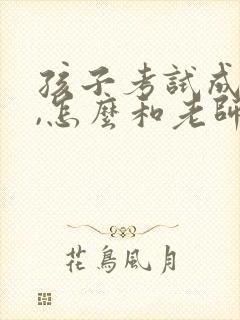 孩子考試成
,怎麼和老師
花鳥風月